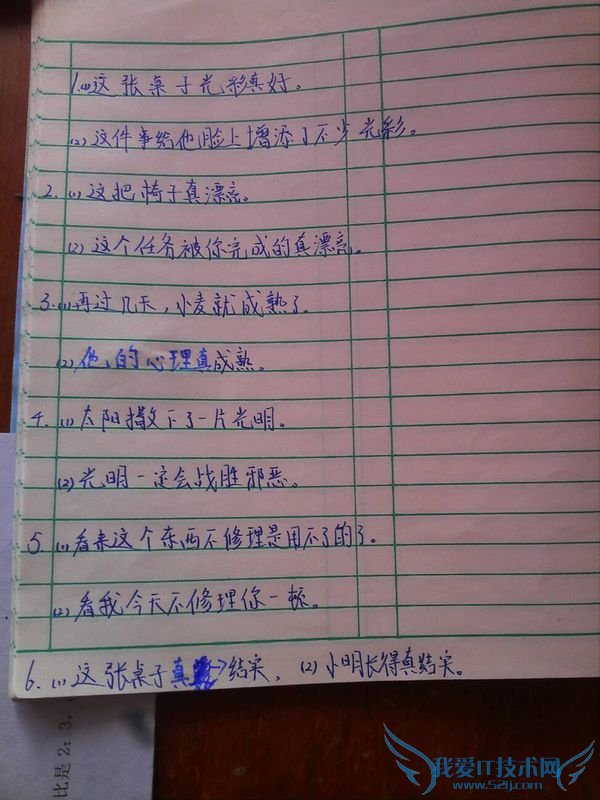 1.(1)这张桌子光彩真好。
(2)这件事给他脸上增添了不少光彩。
2.(1)这把椅子真漂亮。
(2)这个任务被你完成的真漂亮。
3.(1)再过几天，小麦就成熟了。
(2)他的心理真成熟。
4.(1)太阳撒下了一片光明。
(2)光明一定会战胜邪恶。
5.(1)看来这个东西不修理是用不了的了。
(2)看我今天不修理你一顿。
6.(1)这张桌子真结实。(2)小明长得真结实。
比是2：3，
我爱IT技术网
www.52ij.com